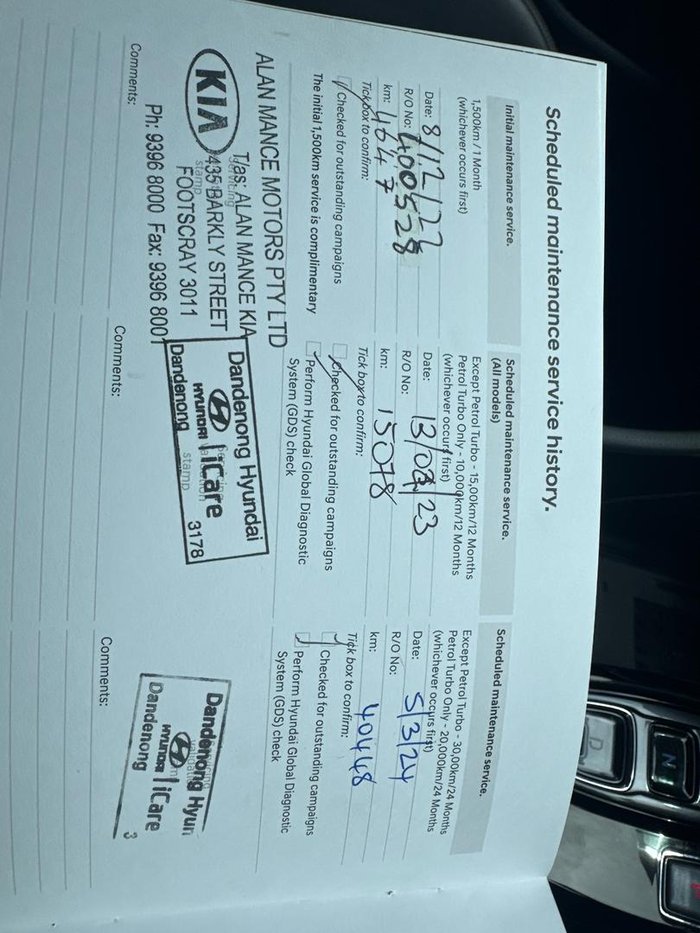 Scheduled maintenance service history.
Initial maintenance service.
1,500km / 1 Month
(whichever occurs first)
Date: 8/12/22
R/O No: 400528
km: 4647
Tick box to confirm:
Checked for outstanding campaigns
The initial 1,500km service is complimentary
ALAN MANCE MOTORS PTY LTD
T/as: ALAN MANCE KIA
KIA
435 BARKLY STREET
FOOTSCRAY 3011
stamp
Ph: 9396 8000 Fax: 9396 8001
Comments:
Scheduled maintenance service.
(All models)
Except Petrol Turbo - 15,00km/12 Months
Petrol Turbo Only - 10,000km/12 Months
(whichever occurs first)
Date: 13/03/23
R/O No:
km: 15078
Tick box to confirm:
Checked for outstanding campaigns
Perform Hyundai Global Diagnostic
System (GDS) check
Dandenong Hyundai
HYUNDAI iCare
Dandenong 3178
stamp
Comments:
Scheduled maintenance service.
Except Petrol Turbo - 30,00km/24 Months
Petrol Turbo Only - 20,000km/24 Months
(whichever occurs first)
Date: 5/3/24
R/O No:
km: 40448
Tick box to confirm:
Checked for outstanding campaigns
Perform Hyundai Global Diagnostic
System (GDS) check
Dandenong Hyun
HYUNDAI iCare
Dandenong 3
Comments:
N
D